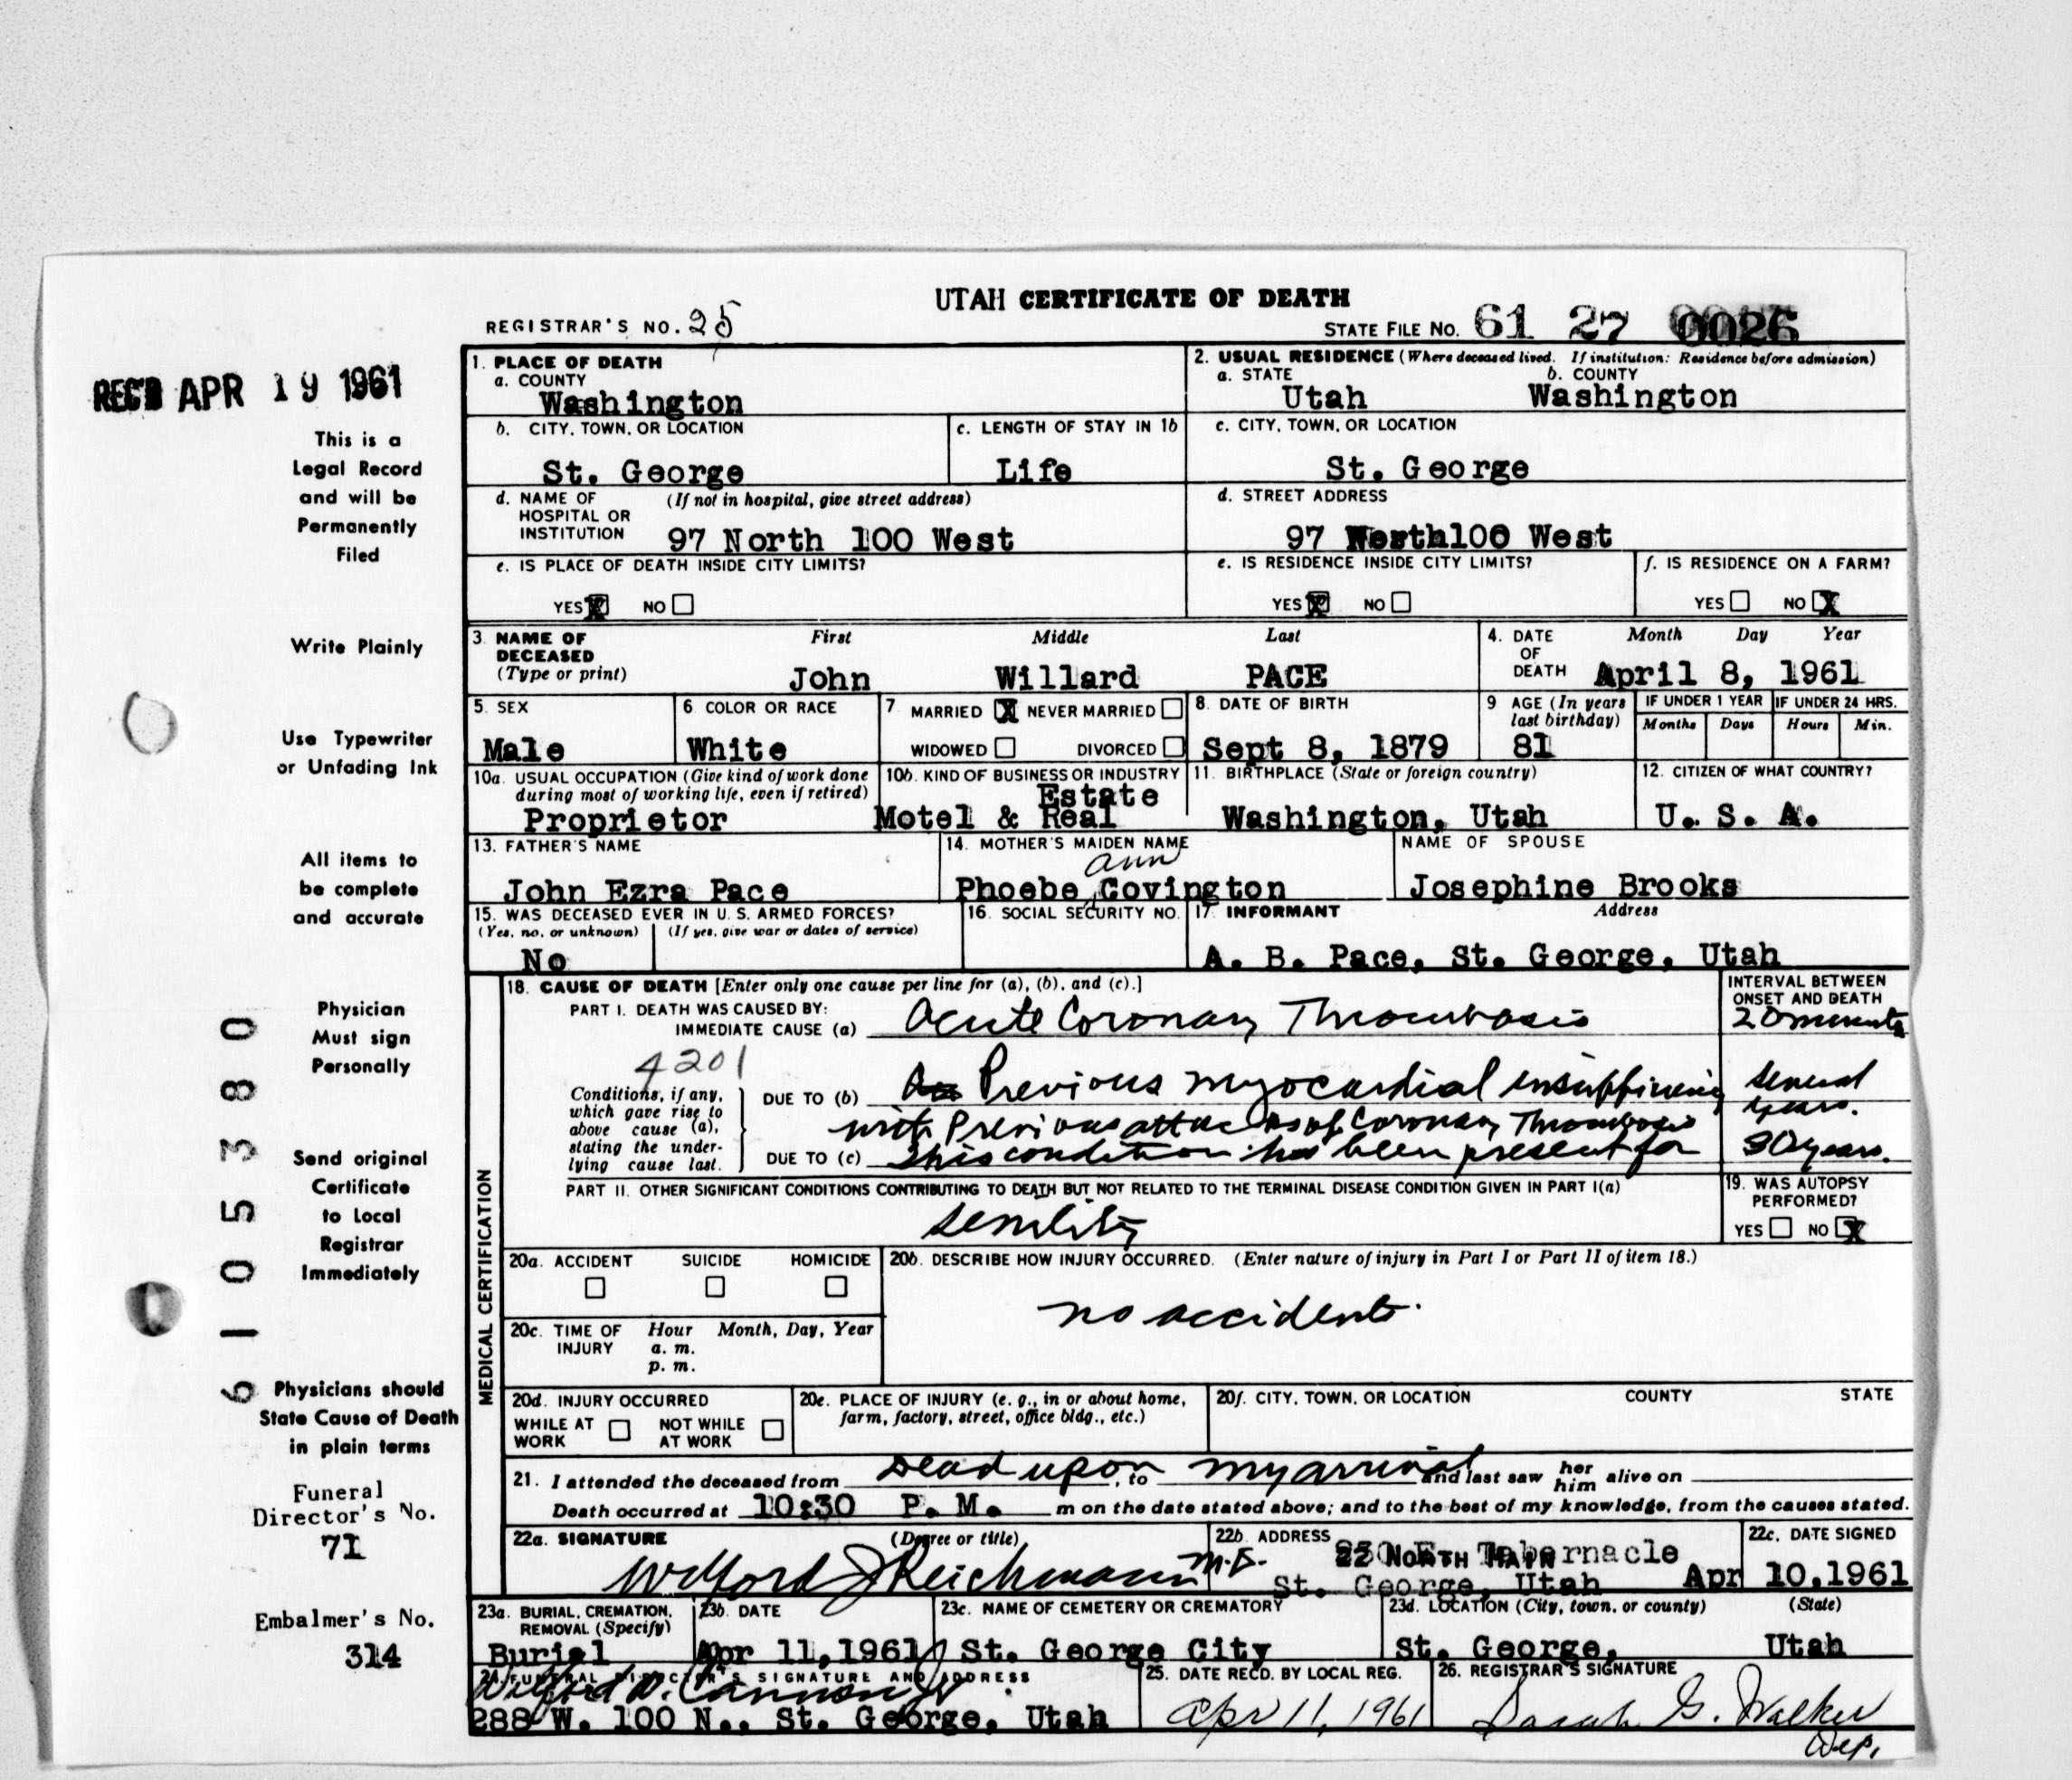 UTAH CERTIFICATE OF DEATH
REGISTRAR'S NO. 25
STATE FILE NO. 61 27 0026
REC'D APR 19 1961
This is a
Legal Record
and will be
Permanently
Filed
Write Plainly
Use Typewriter
or Unfading Ink
All items to
be complete
and accurate
Physician
Must sign
Personally
Send original
Certificate
to Local
Registrar
Immediately
Physicians should
State Cause of Death
in plain terms
Funeral
Director's No.
71
Embalmer's No.
314
6105380
1. PLACE OF DEATH
a. COUNTY
Washington
2. USUAL RESIDENCE (Where deceased lived. If institution: Residence before admission)
a. STATE b. COUNTY
Utah Washington
b. CITY, TOWN, OR LOCATION
St. George
c. LENGTH OF STAY IN 1b
Life
c. CITY, TOWN, OR LOCATION
St. George
d. NAME OF (If not in hospital, give street address)
HOSPITAL OR
INSTITUTION 97 North 100 West
d. STREET ADDRESS
97 North100 West
e. IS PLACE OF DEATH INSIDE CITY LIMITS?
YES X NO
e. IS RESIDENCE INSIDE CITY LIMITS?
YES X NO
f. IS RESIDENCE ON A FARM?
YES NO X
3. NAME OF DECEASED (Type or print)
First Middle Last
John Willard PACE
4. DATE OF DEATH
Month Day Year
April 8, 1961
5. SEX
Male
6 COLOR OR RACE
White
7 MARRIED X NEVER MARRIED
WIDOWED DIVORCED
8. DATE OF BIRTH
Sept 8, 1879
9 AGE (In years
last birthday)
81
IF UNDER 1 YEAR IF UNDER 24 HRS.
Months Days Hours Min.
10a. USUAL OCCUPATION (Give kind of work done
during most of working life, even if retired)
Proprietor
10b. KIND OF BUSINESS OR INDUSTRY
Estate
Motel & Real
11. BIRTHPLACE (State or foreign country)
Washington, Utah
12. CITIZEN OF WHAT COUNTRY?
U. S. A.
13. FATHER'S NAME
John Ezra Pace
14. MOTHER'S MAIDEN NAME
ann
Phoebe Covington
NAME OF SPOUSE
Josephine Brooks
15. WAS DECEASED EVER IN U. S. ARMED FORCES?
(Yes, no, or unknown) (If yes, give war or dates of service)
No
16. SOCIAL SECURITY NO.
17. INFORMANT Address
A. B. Pace, St. George, Utah
MEDICAL CERTIFICATION
18. CAUSE OF DEATH [Enter only one cause per line for (a), (b), and (c).]
INTERVAL BETWEEN
ONSET AND DEATH
PART I. DEATH WAS CAUSED BY:
IMMEDIATE CAUSE (a) Acute Coronary Thrombosis 20 minutes
4201
Conditions, if any,
which gave rise to
above cause (a),
stating the under-
lying cause last.
DUE TO (b) Previous myocardial insufficiency several years.
with Previous attacks of Coronary Thrombosis
DUE TO (c) This condition has been present for 30 years.
PART II. OTHER SIGNIFICANT CONDITIONS CONTRIBUTING TO DEATH BUT NOT RELATED TO THE TERMINAL DISEASE CONDITION GIVEN IN PART I(a)
Senility
19. WAS AUTOPSY
PERFORMED?
YES NO X
20a. ACCIDENT SUICIDE HOMICIDE
20b. DESCRIBE HOW INJURY OCCURRED. (Enter nature of injury in Part I or Part II of item 18.)
no accidents.
20c. TIME OF INJURY Hour Month, Day, Year
a. m.
p. m.
20d. INJURY OCCURRED
WHILE AT WORK NOT WHILE AT WORK
20e. PLACE OF INJURY (e. g., in or about home,
farm, factory, street, office bldg., etc.)
20f. CITY, TOWN, OR LOCATION COUNTY STATE
21. I attended the deceased from Dead upon, to my arrival and last saw her him alive on
Death occurred at 10:30 P. M. m on the date stated above; and to the best of my knowledge, from the causes stated.
22a. SIGNATURE (Degree or title)
Wilford J Reichmann M.D.
22b. ADDRESS
22 NORTH MAIN
Tabernacle
St. George, Utah
22c. DATE SIGNED
Apr 10,1961
23a. BURIAL, CREMATION,
REMOVAL (Specify)
Burial
23b. DATE
Apr 11,1961
23c. NAME OF CEMETERY OR CREMATORY
St. George City
23d. LOCATION (City, town, or county) (State)
St. George, Utah
24. FUNERAL DIRECTOR'S SIGNATURE AND ADDRESS
288 W. 100 N., St. George, Utah
25. DATE RECD. BY LOCAL REG.
Apr 11, 1961
26. REGISTRAR'S SIGNATURE
Sarah G. Walker
Dep.